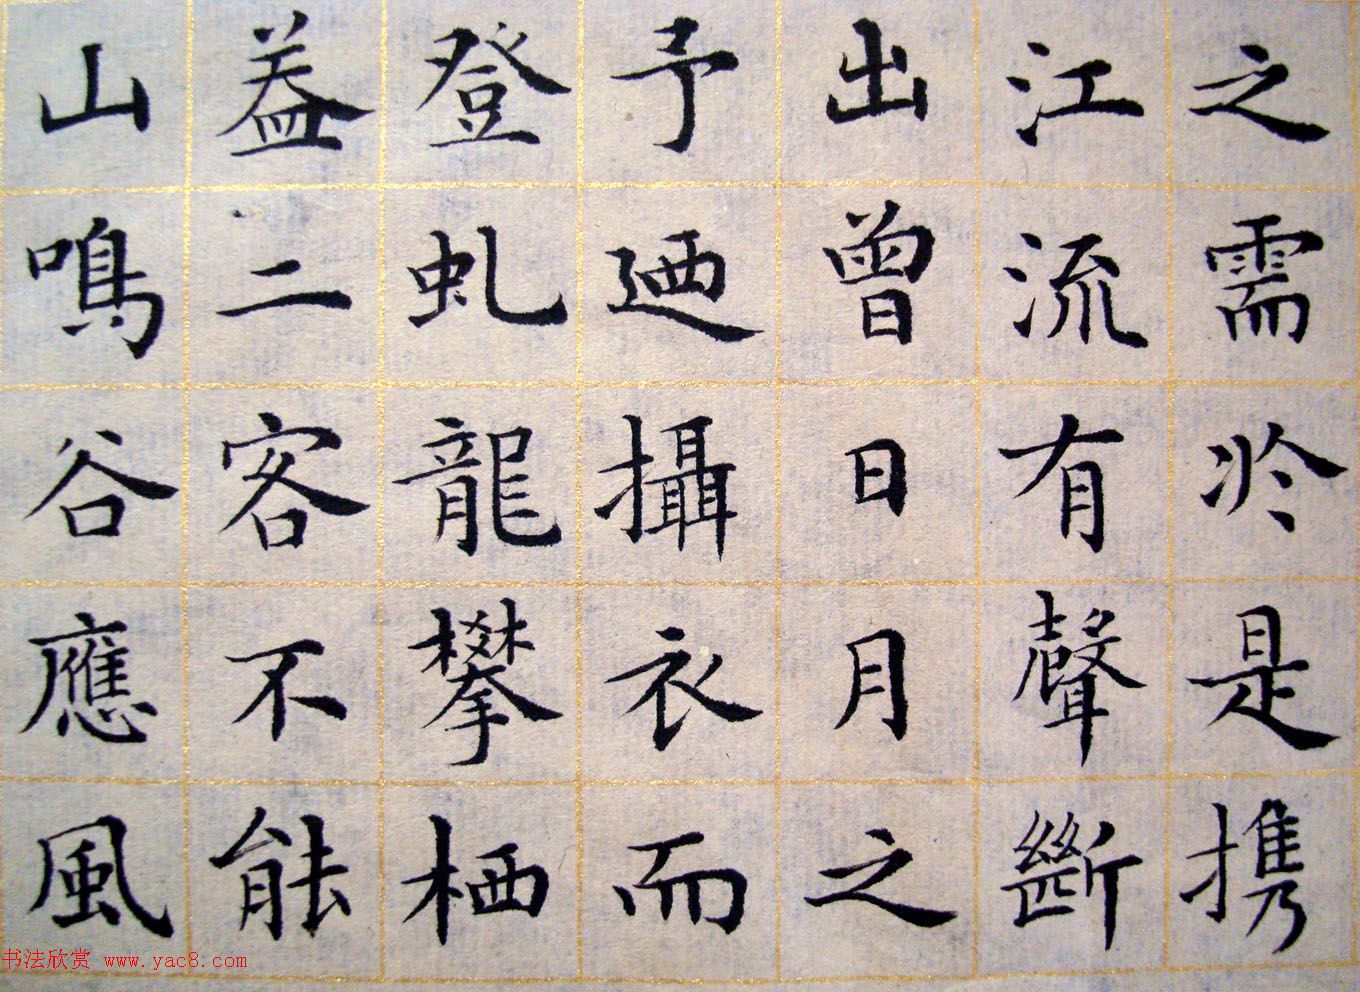 之需於是攜
江流有聲斷
出曾日月之
予廼攝衣而
登虬龍攀栖
葢二客不能
山鳴谷應風
书法欣赏 www.yac8.com